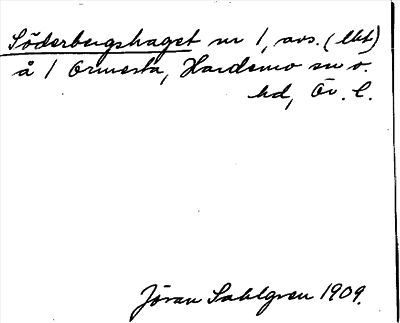 Söderbergshaget nr 1, avs. (lht)
å 1 Ormesta, Hardemo sn o.
hd, Ör. l.
Jöran Sahlgren 1909.